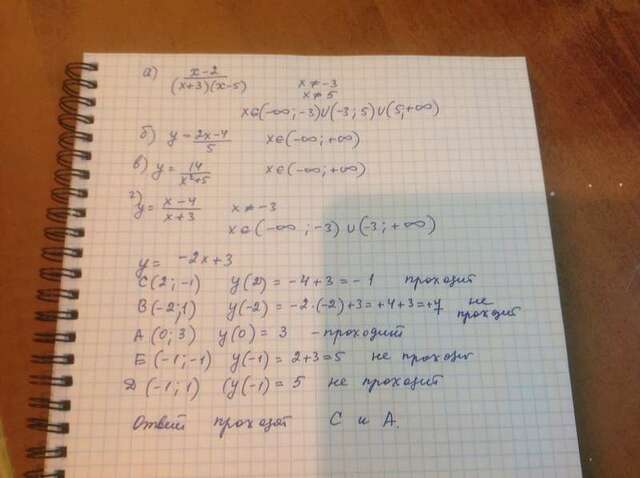 а) x-2/(x+3)(x-5) x ≠ -3
x ≠ 5
x∈(-∞; -3)∪(-3; 5)∪(5; +∞)
б) y = 2x-4/5 x∈(-∞; +∞)
в) y = 14/x²+5 x∈(-∞; +∞)
г) y = x-4/x+3 x ≠ -3
x∈(-∞; -3)∪(-3; +∞)
y = -2x+3
С(2; -1) y(2) = -4+3 = -1 проходит
В(-2; 1) y(-2) = -2·(-2)+3 = +4+3 = +7 не проходит
А (0; 3) y(0) = 3 - проходит
Б (-1; -1) y(-1) = 2+3 = 5 не проходит
Д (-1; 1) (y(-1) = 5 не проходит
Ответ проходят С и А.